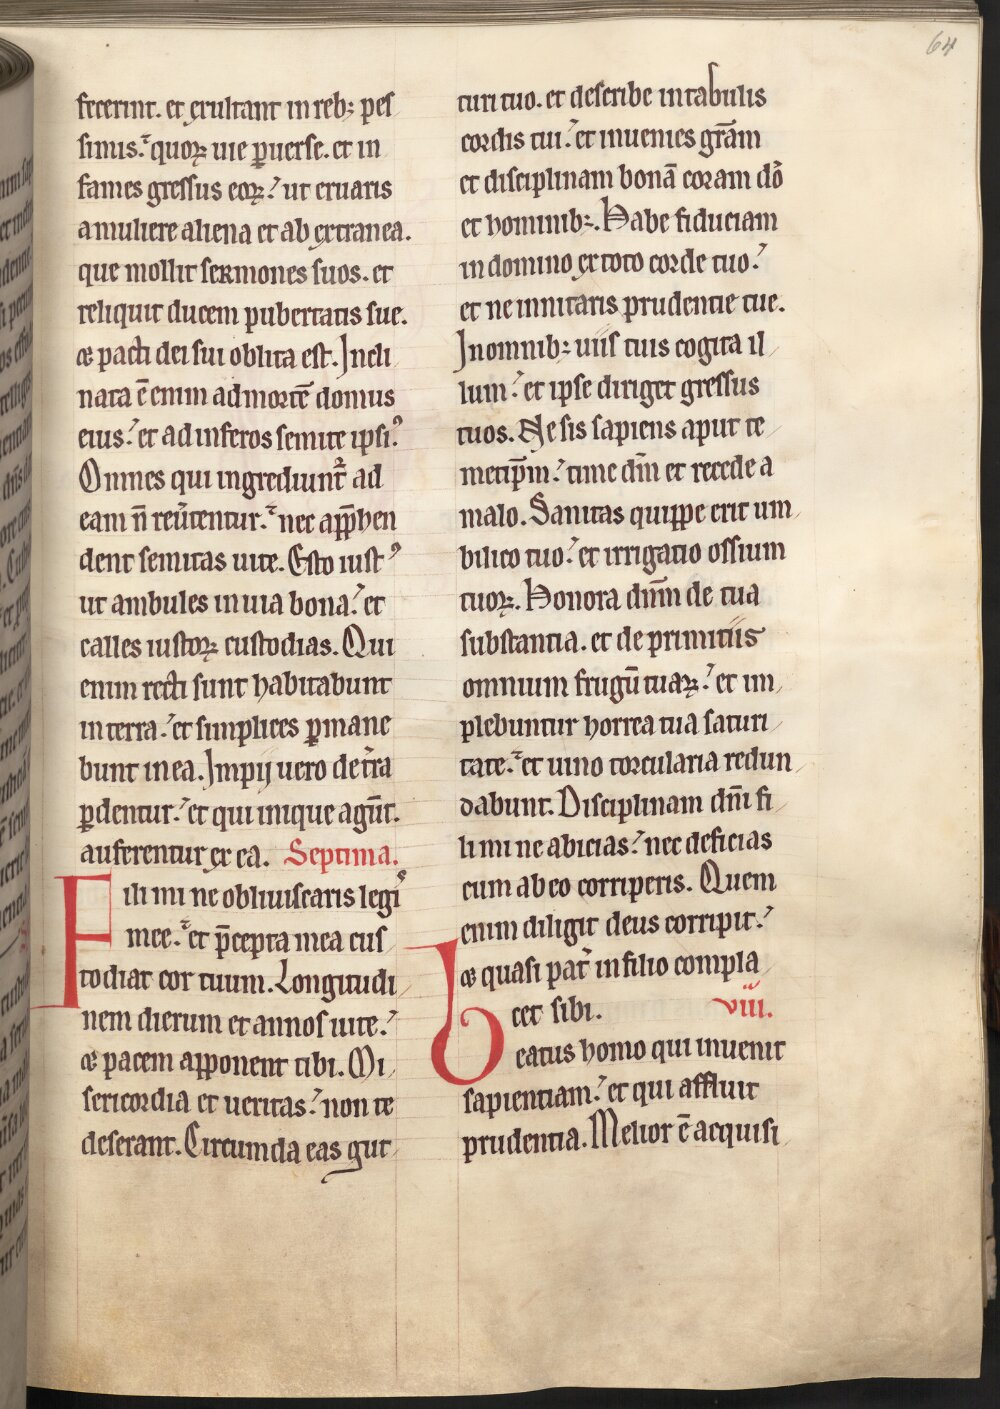 64
fecerint. et exultant in reb; pes
simis. quoꝝ uie ꝑuerse. et in
fames gressus eoꝝ. ut eruaris
a muliere aliena et ab extranea.
que mollit sermones suos. et
reliquit ducem pubertatis sue.
⁊ pacti dei sui oblita est. Incli
nata ē enim ad mortē domus
eius. et ad inferos semite ipsiꝰ.
Omnes qui ingrediunt᷑ ad
eam n̄ reũtentur. nec app̄hen
dent semitas uite. Esto iustꝰ
ut ambules in uia bona. et
calles iustoꝝ custodias. Qui
enim recti sunt habitabunt
in terra. et simplices ꝑmane
bunt in ea. Impij uero de t̃ra
ꝑdentur. et qui inique agūt.
auferentur ex ea. Septima.
Fili mi ne obliuiscaris legiꝰ
mee. et p̄cepta mea cus
todiat cor tuum. Longitudi
nem dierum et annos uite.
⁊ pacem apponent tibi. Mi
sericordia et ueritas. non te
deserant. Circumda eas gut
turi tuo. et describe in tabulis
cordis tui. et inuenies gr̄am
et disciplinam bonā coram dõ
et hominib;. Habe fiduciam
in domino ex toto corde tuo.
et ne innitaris prudentie tue.
In omnib; uiis tuis cogita il
lum. et ipse diriget gressus
tuos. Ne sis sapiens aput te
metip̄m. time dm̄ et recede a
malo. Sanitas quippe erit um
bilico tuo. et irrigatio ossium
tuoꝝ. Honora dn̄m de tua
substantia. et de primitiis
omnium frugū tuaꝝ. et im
plebuntur horrea tua saturi
tate. et uino torcularia redun
dabunt. Disciplinam dn̄i fi
li mi ne abicias. nec deficias
cum ab eo corriperis. Quem
enim diligit deus corripit.
⁊ quasi pat᷑ in filio compla
cet sibi. viii.
Beatus homo qui inuenit
sapientiam. et qui affluit
prudentia. Melior ē acquisi